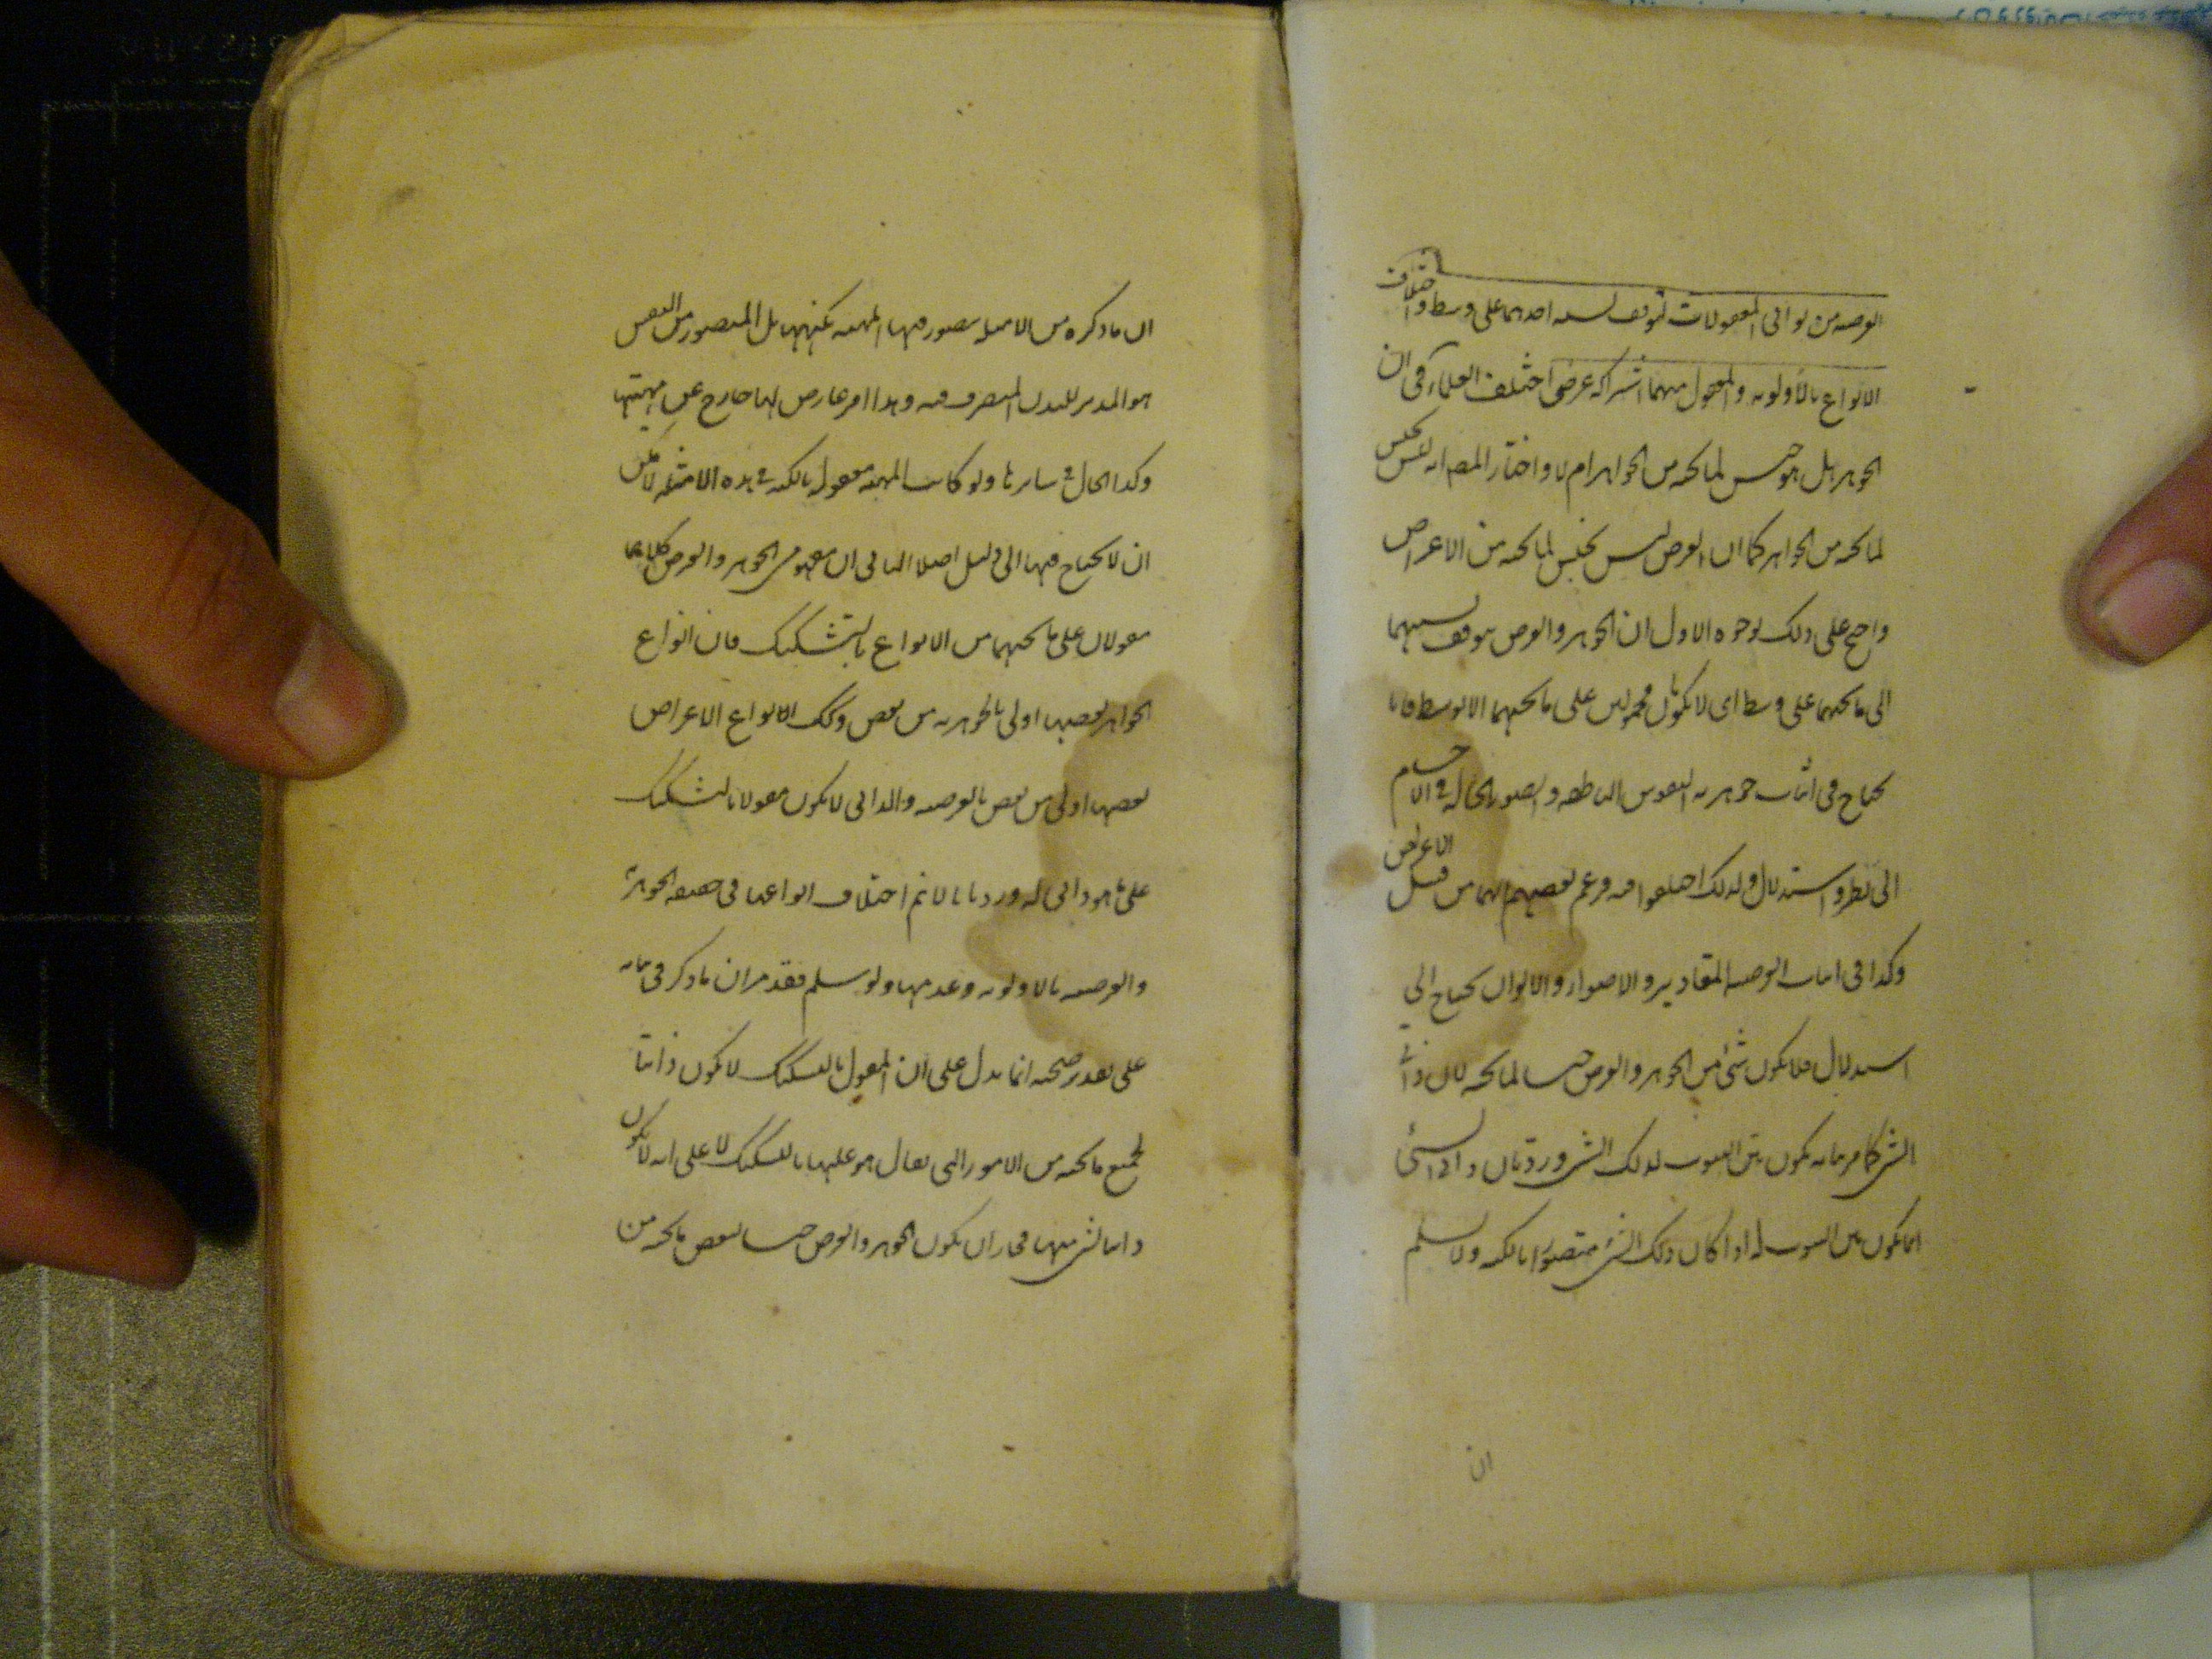 العرضية من ثواني المعقولات لتوقف نسبة احدهما على وسط واختلاف
الانواع بالاولوية والمعقول منهما اشتراكه عرضى اختلف العلماء فى ان
الجوهر هل هو جنس لما تحته من الجواهر ام لا واختار المص انه ليس بجنس
لما تحته من الجواهر كما ان العرض ليس بجنس لما تحته من الاعراض
واحتج على ذلك بوجوه الاول ان الجوهر والعرض يتوقف نسبتهما
الى ما تحتهما على وسط اى لا يكونان محمولين على ما تحتهما الا بوسط فانا
نحتاج فى اثبات جوهرية النفوس الناطقة والصور الحالة فى الاجسام
الى نظر واستدلال ولذلك اختلفوا فيه فزعم بعضهم انها من قبيل الاعراض
وكذا فى اثبات عرضية المقادير والاضواء والالوان نحتاج الى
استدلال فلا يكون شئ من الجوهر والعرض جنسا لما تحته لان ذاتى
الشئ كما مر بانه يكون بين الثبوت لذلك الشئ ورد بان ذاتى الشئ
انما يكون بين الثبوت له اذا كان ذلك الشئ متصورا بالكنه ولا نسلم
ان
ان ما ذكره من الامثلة يتصور فيها المهية بكنهها بل المتصور من النفس
هو المدبر للبدن المتصرف فيه وهذا امر عارض لها خارج عن مهيتها
وكذا الحال فى سايرها ولو كانت المهية معقولة بالكنه فى هذه الامثلة لامكن
ان لا يحتاج فيها الى دليل اصلا الثانى ان مفهومى الجوهر والعرض كلاهما
مقولان على ما تحتهما من الانواع بالتشكيك فان انواع
الجواهر بعضها اولى بالجوهرية من بعض وكذلك الانواع الاعراض
بعضها اولى من بعض بالعرضية والذاتى لا يكون مقولا بالتشكيك
على ما هو ذاتى له ورد بانا لا نم اختلاف انواعها فى صفة الجوهرية
والعرضية بالاولوية وعدمها ولو سلم فقد مر ان ما ذكر فى بيانه
على تقدير صحته انما يدل على ان المقول بالتشكيك لا يكون ذاتيا
لجميع ما تحته من الامور التى يقال هو عليها بالتشكيك لا على انه لا يكون
ذاتيا لشئ منها فجاز ان يكون الجوهر والعرض جنسا لبعض ما تحته من